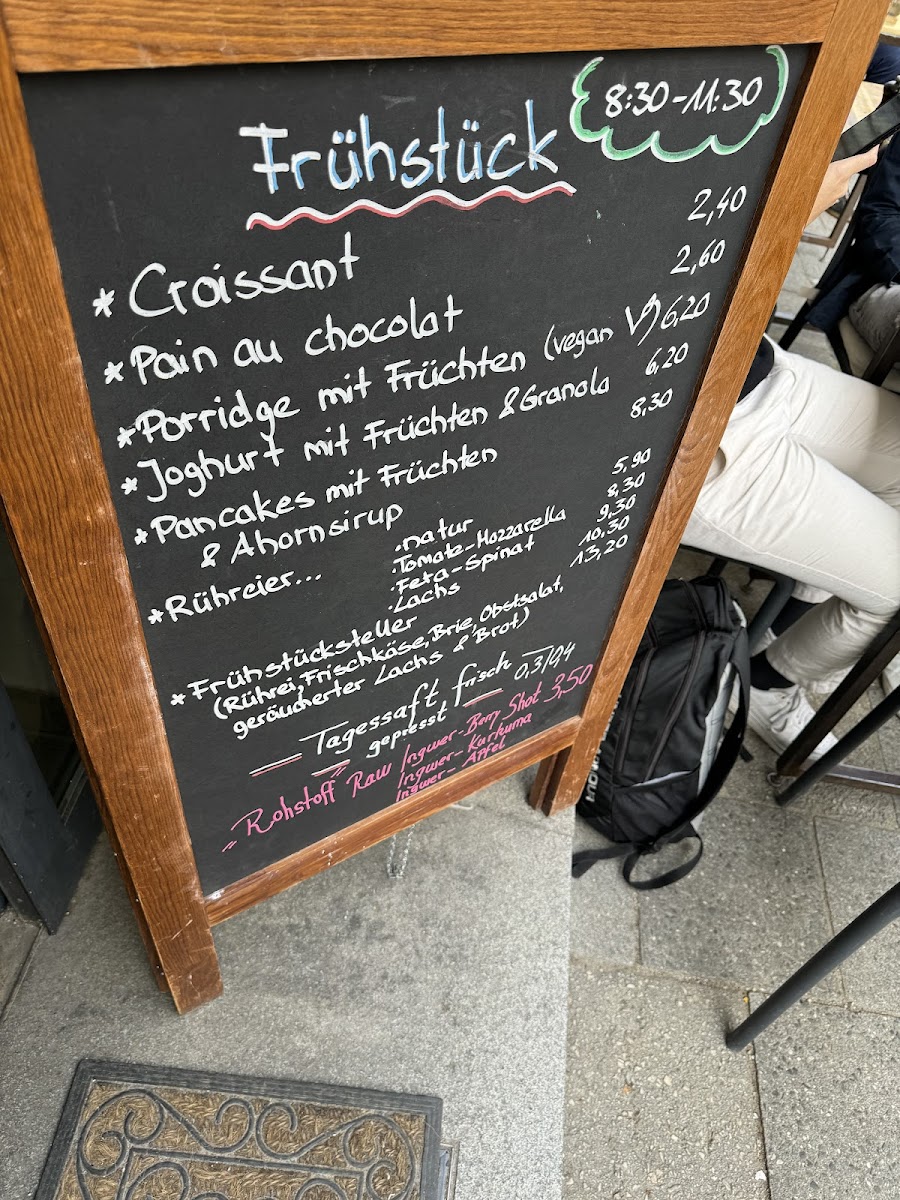 Frühstück 8:30-11:30
*Croissant 2,40
*Pain au chocolat 2,60
*Porridge mit Früchten (vegan V) 6,20
*Joghurt mit Früchten & Granola 6,20
*Pancakes mit Früchten 8,30
& Ahornsirup
*Rühreier... .natur 5,90
.Tomate-Mozzarella 8,30
.Feta-Spinat 9,30
.Lachs 10,30
*Frühstücksteller 13,20
(Rührei, Frischkäse, Brie, Obstsalat,
geräucherter Lachs & Brot)
Tagessaft frisch 0,3/
gepresst
"Rohstoff" Raw Ingwer-Berry Shot 3,50
Ingwer-Kurkuma
Ingwer-Apfel